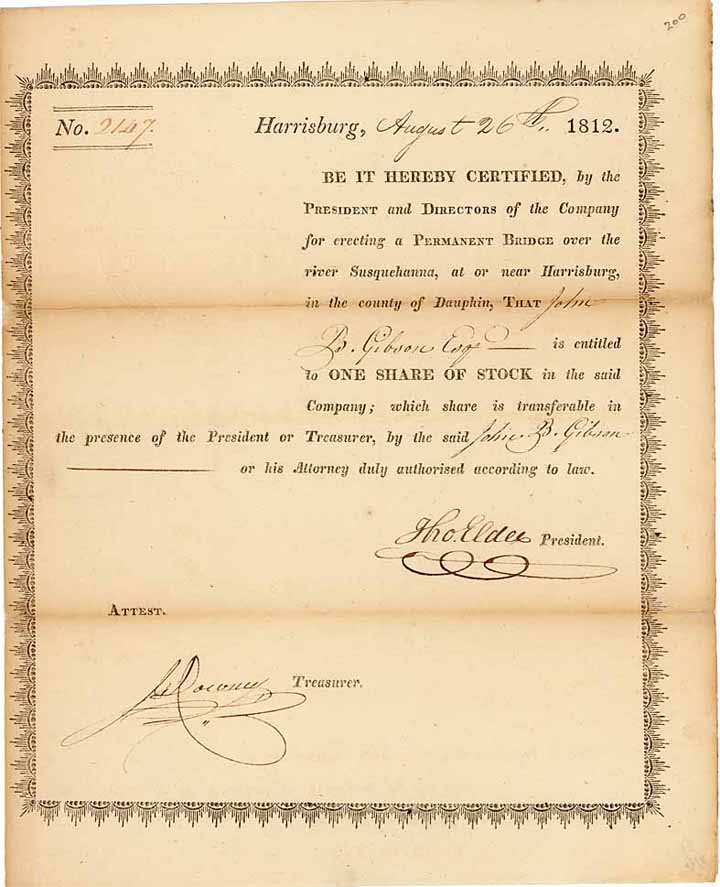 200
No. 2147. Harrisburg, August 26th. 1812.
BE IT HEREBY CERTIFIED, by the
PRESIDENT and DIRECTORS of the Company
for erecting a PERMANENT BRIDGE over the
river Susquehanna, at or near Harrisburg,
in the county of Dauphin, THAT John
B. Gibson Esqr is entitled
to ONE SHARE OF STOCK in the said
Company; which share is transferable in
the presence of the President or Treasurer, by the said John B. Gibson
or his Attorney duly authorised according to law.
Tho. Elder President.
ATTEST.
Downey Treasurer.